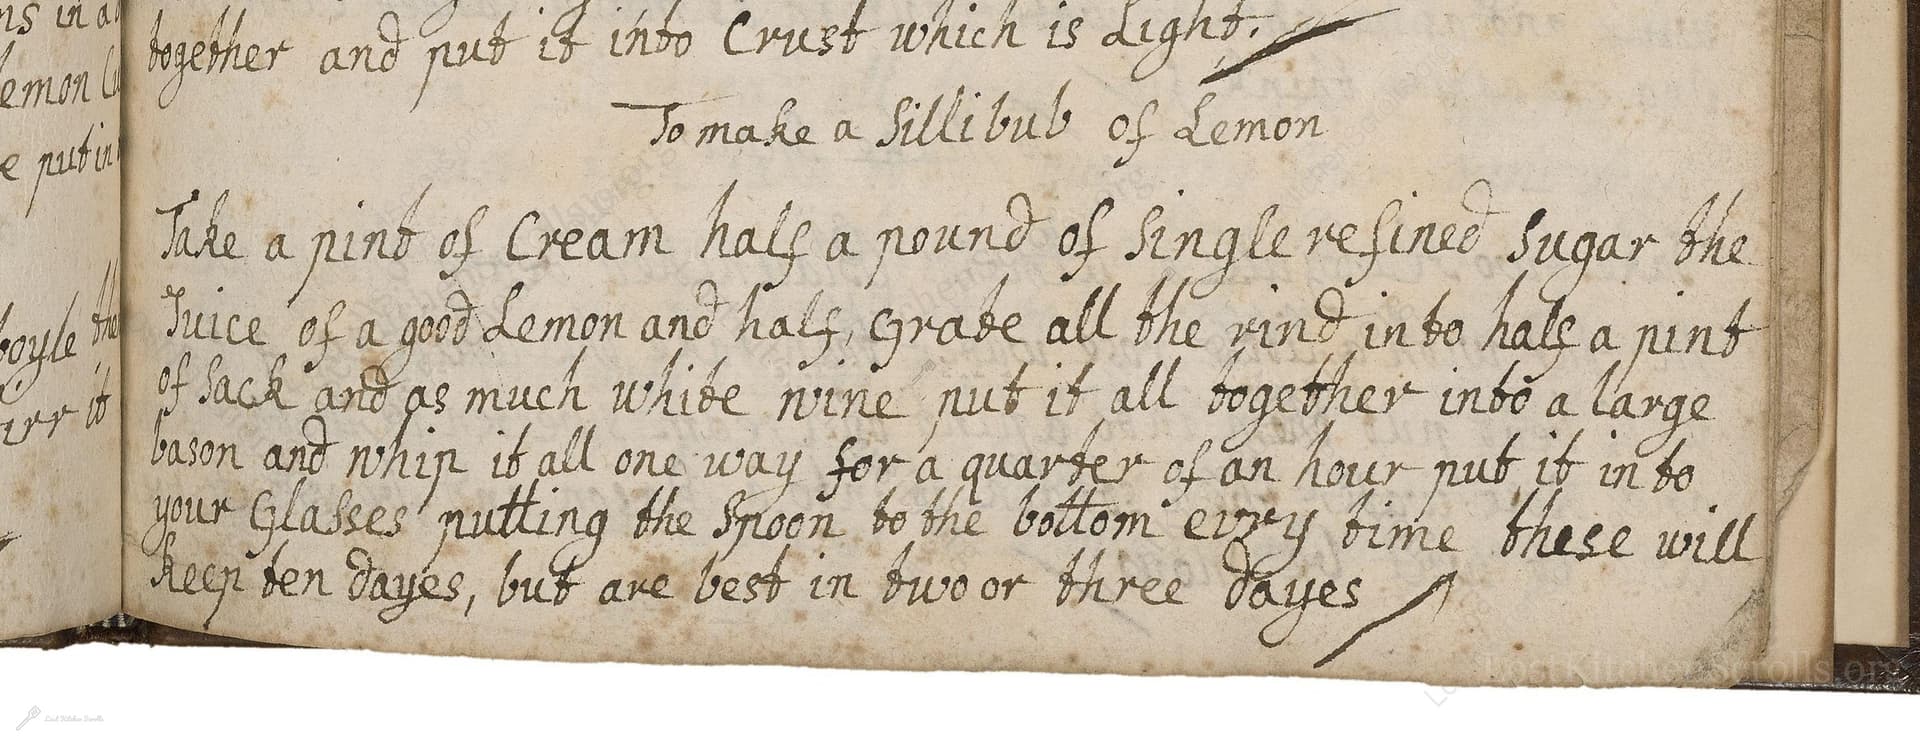 ns in a
emon
e put in
boyle the
irr it
together and put it into Crust which is Light.
To make a Sillibub of Lemon
Take a pint of Cream half a pound of Single refined Sugar the
Juice of a good Lemon and half, Grate all the rind into half a pint
of Sack and as much white wine put it all together into a large
bason and whip it all one way for a quarter of an hour put it into
your Glasses putting the Spoon to the bottom evry time these will
keep ten dayes, but are best in two or three dayes
LostKitchenScrolls.org
Lost Kitchen Scrolls